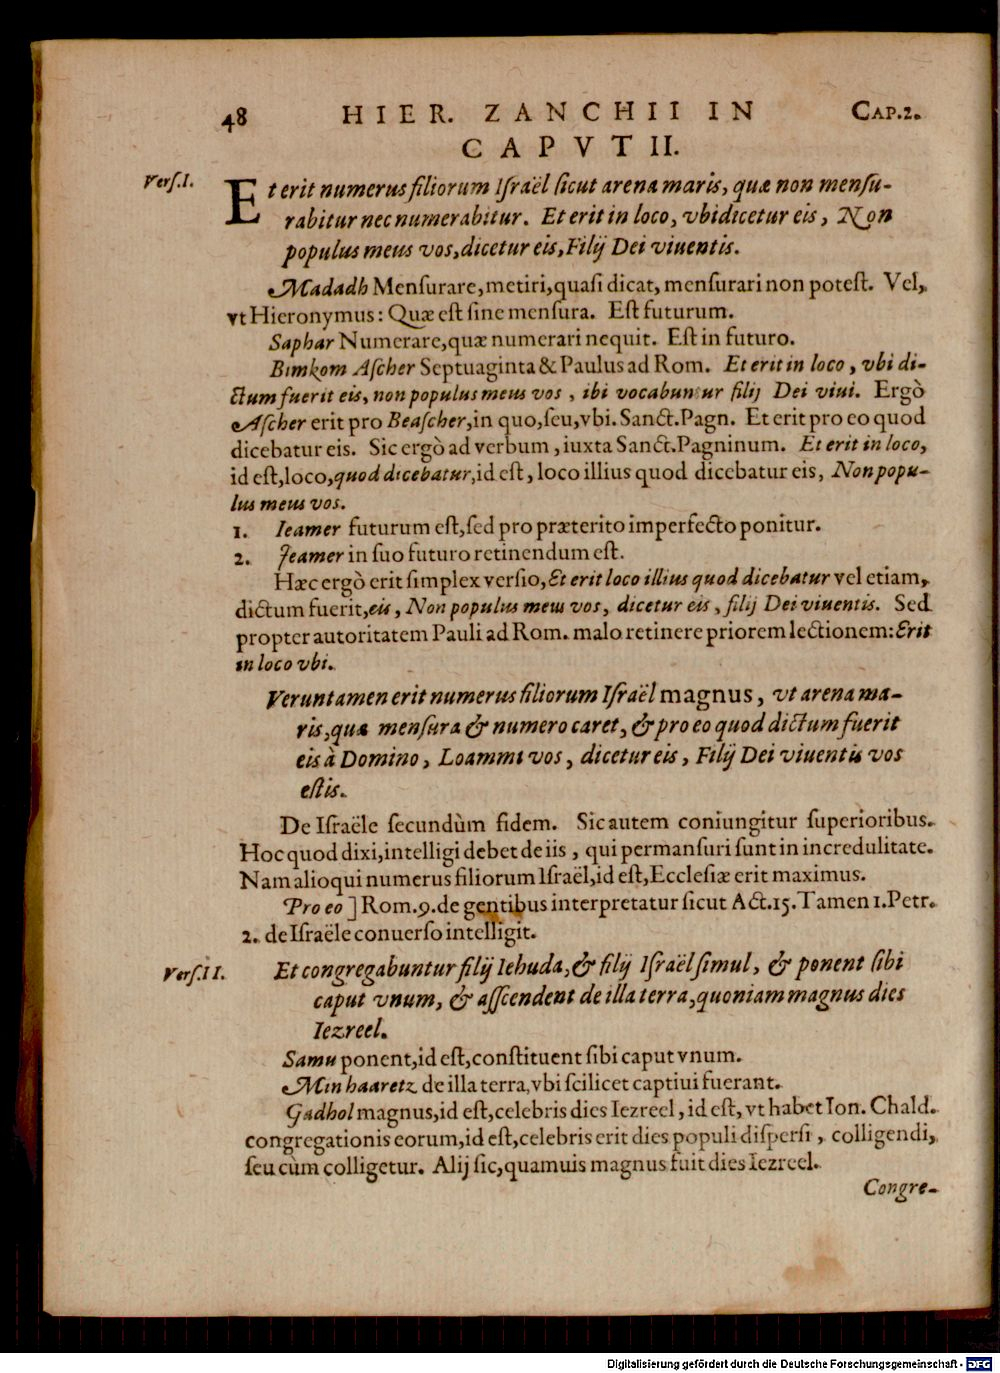 48 HIER. ZANCHII IN CAP.2.
CAPVT II.
Vers.I. Et erit numerus filiorum Israël sicut arena maris, quæ non mensu-
rabitur nec numerabitur. Et erit in loco, vbi dicetur eis, Non
populus meus vos, dicetur eis, Filij Dei viuentis.
Madadh Mensurare, metiri, quasi dicat, mensurari non potest. Vel,
vt Hieronymus: Quæ est sine mensura. Est futurum.
Saphar Numerare, quæ numerari nequit. Est in futuro.
Bimkom Ascher Septuaginta & Paulus ad Rom. Et erit in loco, vbi di-
ctum fuerit eis, non populus meus vos, ibi vocabuntur filij Dei viui. Ergò
Ascher erit pro Beascher, in quo, seu, vbi. Sanct. Pagn. Et erit pro eo quod
dicebatur eis. Sic ergò ad verbum, iuxta Sanct. Pagninum. Et erit in loco,
id est, loco, quod dicebatur, id est, loco illius quod dicebatur eis, Non popu-
lus meus vos.
1. Ieamer futurum est, sed pro præterito imperfecto ponitur.
2. Jeamer in suo futuro retinendum est.
Hæc ergò erit simplex versio, Et erit loco illius quod dicebatur vel etiam,
dictum fuerit, eis, Non populus meus vos, dicetur eis, filij Dei viuentis. Sed
propter autoritatem Pauli ad Rom. malo retinere priorem lectionem: Erit
in loco vbi.
Veruntamen erit numerus filiorum Israël magnus, vt arena ma-
ris, quæ mensura & numero caret, & pro eo quod dictum fuerit
eis à Domino, Loammi vos, dicetur eis, Filij Dei viuentis vos
estis.
De Israële secundùm fidem. Sic autem coniungitur superioribus.
Hoc quod dixi, intelligi debet de iis, qui permansuri sunt in incredulitate.
Nam alioqui numerus filiorum Israël, id est, Ecclesiæ erit maximus.
Pro eo ] Rom. 9. de gentibus interpretatur sicut Act. 15. Tamen 1. Petr.
2. de Israële conuerso intelligit.
Vers.II. Et congregabuntur filij Iehuda, & filij Israël simul, & ponent sibi
caput vnum, & asscendent de illa terra, quoniam magnus dies
Iezreel.
Samu ponent, id est, constituent sibi caput vnum.
Min haaretz de illa terra, vbi scilicet captiui fuerant.
Gadhol magnus, id est, celebris dies Iezreel, id est, vt habet Ion. Chald.
congregationis eorum, id est, celebris erit dies populi dispersi, colligendi,
seu cùm colligetur. Alij sic, quamuis magnus fuit dies Iezreel.
Congre-
Digitalisierung gefördert durch die Deutsche Forschungsgemeinschaft - DFG